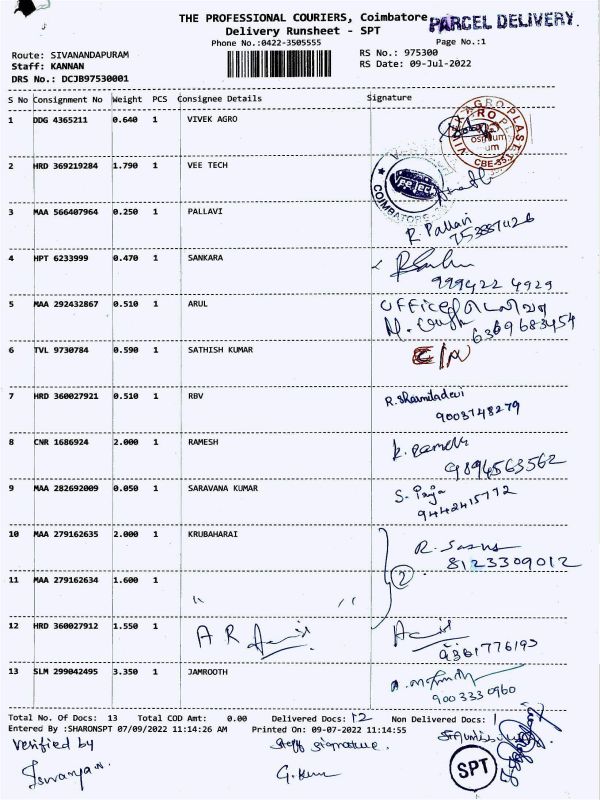 THE PROFESSIONAL COURIERS, Coimbatore
PARCEL DELIVERY.
Delivery Runsheet - SPT
Phone No.:0422-3505555
Page No.:1
Route: SIVANANDAPURAM
RS No.: 975300
Staff: KANNAN
RS Date: 09-Jul-2022
DRS No.: DCJB97530001
S No Consignment No Weight PCS Consignee Details Signature
1 DDG 4365211 0.640 1 VIVEK AGRO
2 HRD 369219284 1.790 1 VEE TECH
VeeTech
COIMBATORE
3 MAA 566407964 0.250 1 PALLAVI
R. Pallavi
4 HPT 6233999 0.470 1 SANKARA
999422 4929
5 MAA 292432867 0.510 1 ARUL
office
6369683454
6 TVL 9730784 0.590 1 SATHISH KUMAR
7 HRD 360027921 0.510 1 RBV
R. Sharmiladevi
9003748279
8 CNR 1686924 2.000 1 RAMESH
9894563562
9 MAA 282692009 0.050 1 SARAVANA KUMAR
9442415772
10 MAA 279162635 2.000 1 KRUBAHARAI
8123309012
11 MAA 279162634 1.600 1 " "
2
12 HRD 360027912 1.550 1 A R
9361776193
13 SLM 299042495 3.350 1 JAMROOTH
9003330960
Total No. Of Docs: 13 Total COD Amt: 0.00 Delivered Docs: 12 Non Delivered Docs: 1
Entered By :SHARONSPT 07/09/2022 11:14:26 AM Printed On: 09-07-2022 11:14:55
Verified by
Staff signature.
SPT